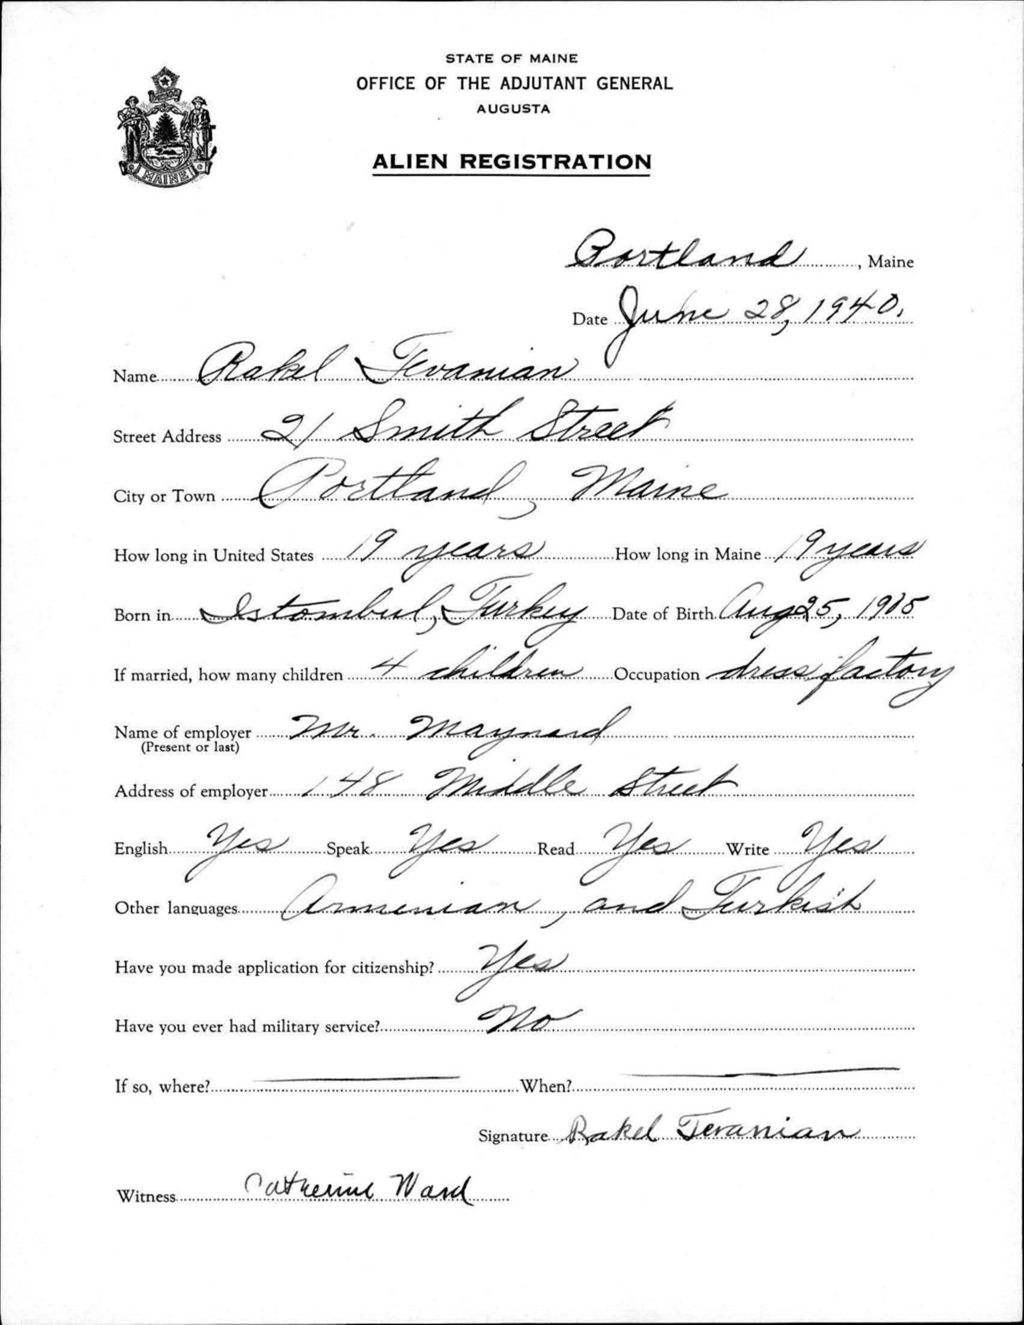 STATE OF MAINE
OFFICE OF THE ADJUTANT GENERAL
AUGUSTA
ALIEN REGISTRATION
MAINE
Portland, Maine
Date June 28, 1940.
Name Rakel Tevanian
Street Address 21 Smith Street
City or Town Portland, Maine
How long in United States 19 years How long in Maine 19 years
Born in Istombul, Turkey Date of Birth Aug 25, 1905
If married, how many children 4 children Occupation dress factory
Name of employer Mr. Maynard
(Present or last)
Address of employer 148 Middle Street
English Yes Speak Yes Read Yes Write Yes
Other languages Armenian, and Turkish
Have you made application for citizenship? Yes
Have you ever had military service? No
If so, where? When?
Signature Rakel Tevanian
Witness Catherine Ward